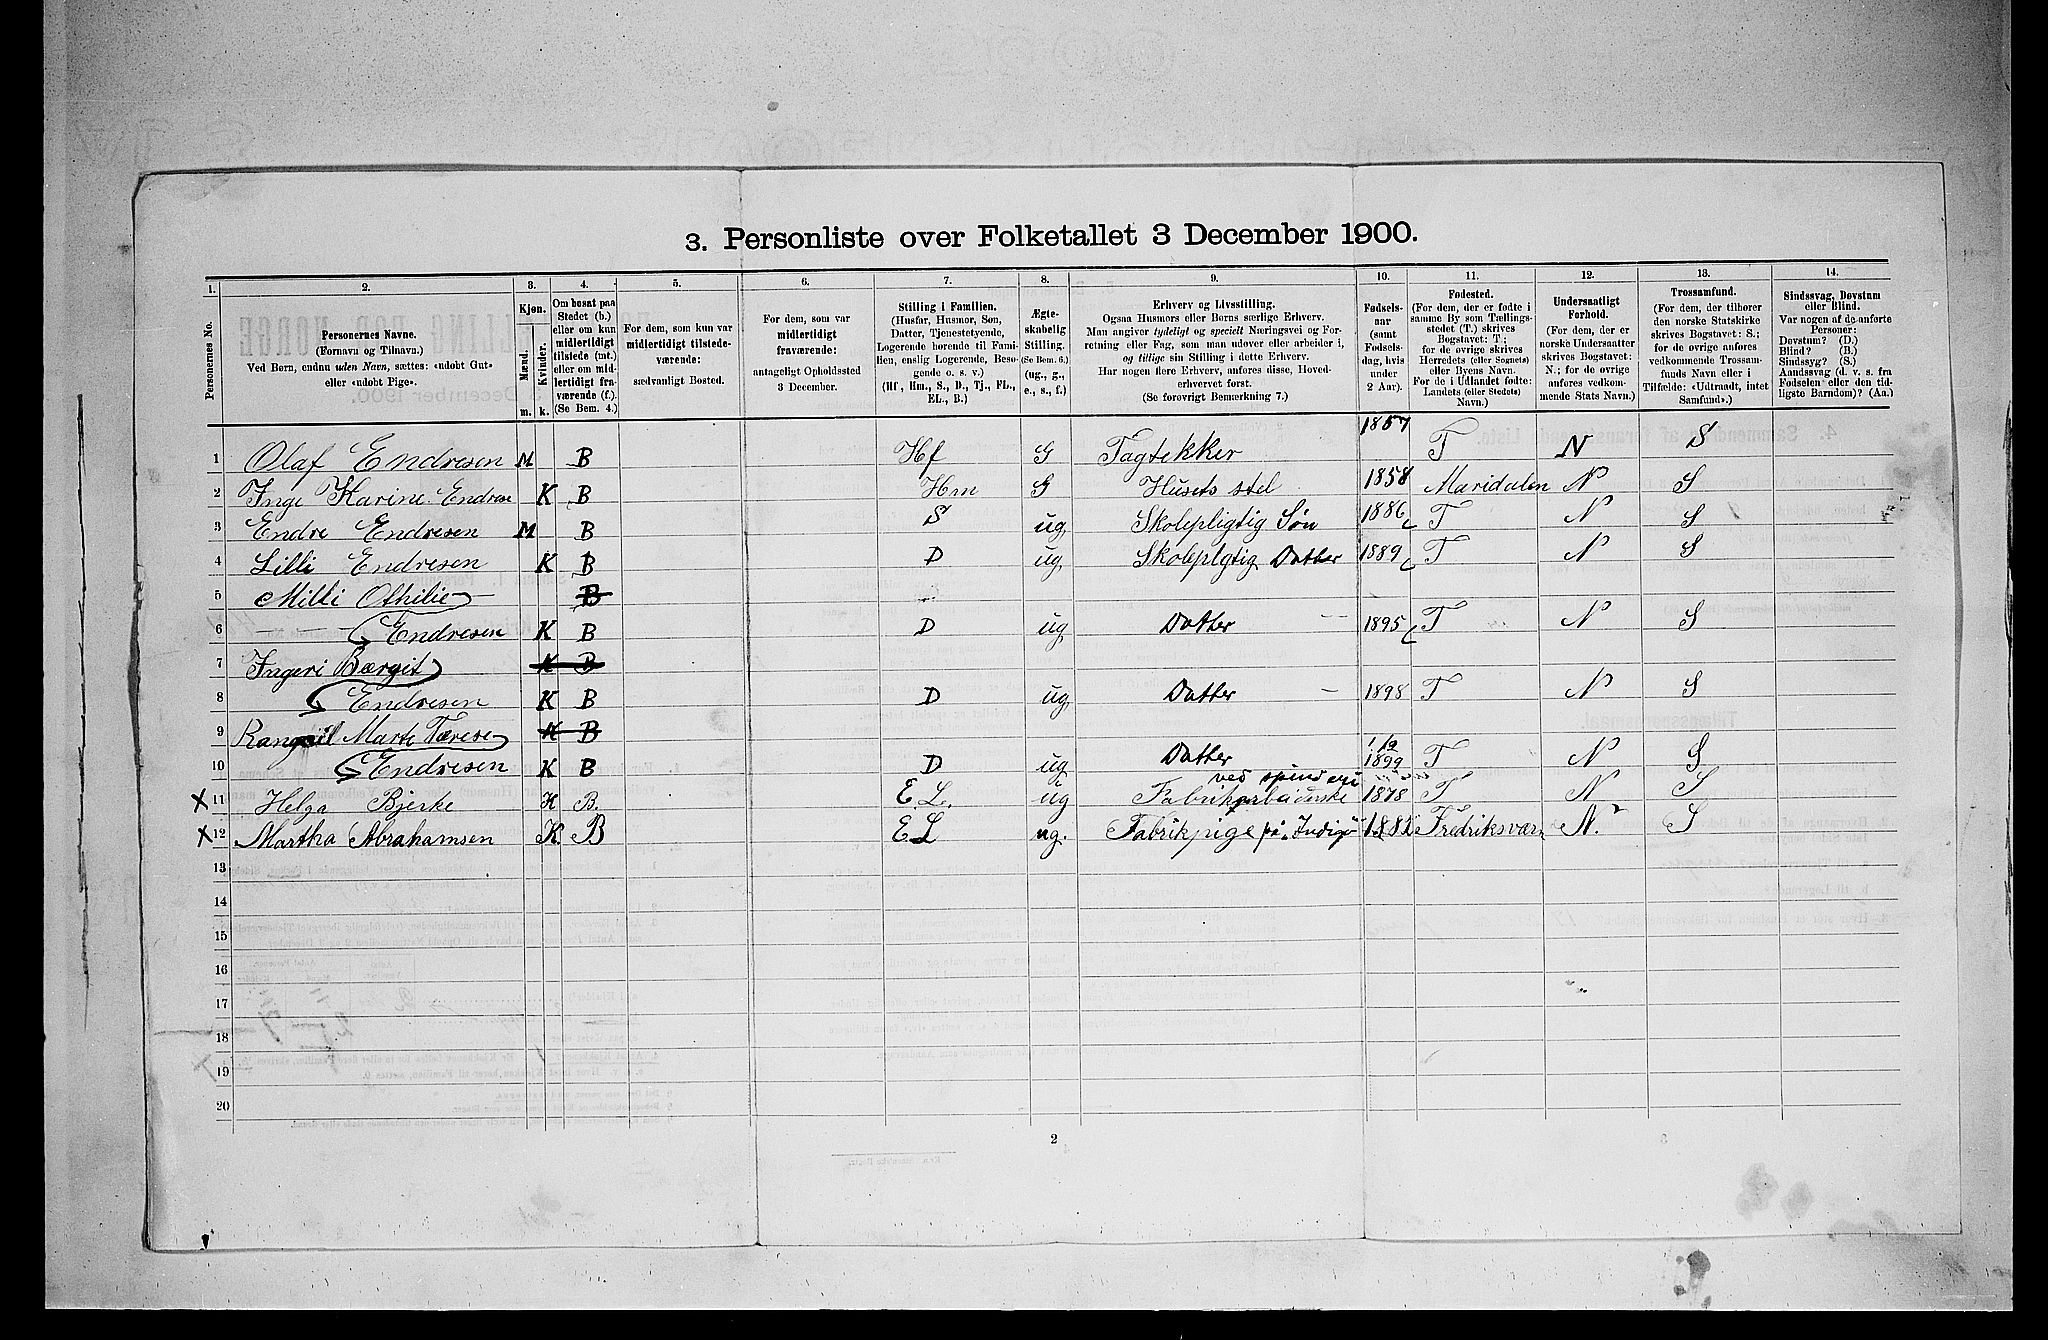 3. Personliste over Folketallet 3 December 1900.
1. 2. 3. 4. 5. 6. 7. 8. 9. 10. 11. 12. 13. 14.
Personernes No.
Personernes Navne.
(Fornavn og Tilnavn.)
Ved Børn, endnu uden Navn, sættes: «udobt Gut»
eller «udobt Pige».
Kjøn.
Mænd.
Kvinder.
m. k.
Om bosat paa
Stedet (b.)
eller om kun
midlertidigt
tilstede (mt.)
eller om mid-
lertidigt fra-
værende (f.).
(Se Bem. 4.)
For dem, som kun var
midlertidigt tilstede-
værende:
sædvanligt Bosted.
For dem, som var
midlertidigt
fraværende:
antageligt Opholdssted
3 December.
Stilling i Familien.
(Husfar, Husmor, Søn,
Datter, Tjenestetyende,
Logerende hørende til Fami-
lien, enslig Logerende, Besø-
gende o. s. v.)
(Hf., Hm., S., D., Tj., FL.,
EL., B.)
Ægte-
skabelig
Stilling.
(Se Bem. 6.)
(ug., g.,
e., s., f.)
Erhverv og Livsstilling.
Ogsaa Husmors eller Børns særlige Erhverv.
Man angiver tydeligt og specielt Næringsvei og For-
retning eller Fag, som man udøver eller arbeider i,
og tillige sin Stilling i dette Erhverv.
Har nogen flere Erhverv, anføres disse, Hoved-
erhvervet først.
(Se forøvrigt Bemærkning 7.)
Fødsels-
aar
(samt
Fødsels-
dag, hvis
under
2 Aar).
Fødested.
(For dem, der er fødte i
samme By som Tællings-
stedet (T.) skrives
Bogstavet: T.;
for de øvrige skrives
Herredets (eller Sognets)
eller Byens Navn.
For de i Udlandet fødte:
Landets (eller Stedets)
Navn.)
Undersaatligt
Forhold.
(For dem, der er
norske Undersaatter
skrives Bogstavet:
N.; for de øvrige
anføres vedkom-
mende Stats Navn.)
Trossamfund.
(For dem, der tilhører
den norske Statskirke
skrives Bogstavet: S.;
for de øvrige anføres
vedkommende Trossam-
funds Navn eller i
Tilfælde: «Udtraadt, intet
Samfund».)
Sindssvag, Døvstum
eller Blind.
Var nogen af de anførte
Personer:
Døvstum? (D.)
Blind? (B.)
Sindssyg? (S.)
Aandssvag (d. v. s. fra
Fødselen eller den tid-
ligste Barndom)? (Aa.)
1 Olaf Endresen M B Hf G Tagtekker 1857 T N S
2 Inge Karine Endrese K B Hm G Husets stel 1858 Maridalen N S
3 Endre Endresen M B S ug Skolepligtig Søn 1886 T N S
4 Lilli Endresen K B D ug Skoleplgtig Datter 1889 T N S
5 Milli Othilie B
6 Endresen K B D ug Datter 1895 T N S
7 Ingeri Bærgit K B
8 Endresen K B D ug Datter 1898 T N S
9 Marte Tærese K B
10 Endresen K B D ug Datter 1899 T N S
ved spinderi
X 11 Helga Bjerke K B. E L. ug Fabrikarbeiderske 1878 T N S
X 12 Martha Abrahamsen K. B E L ug. Fabrikpige på "Indigo" Fredriksværn N. S
13
14
15
16
17
18
19
20
2